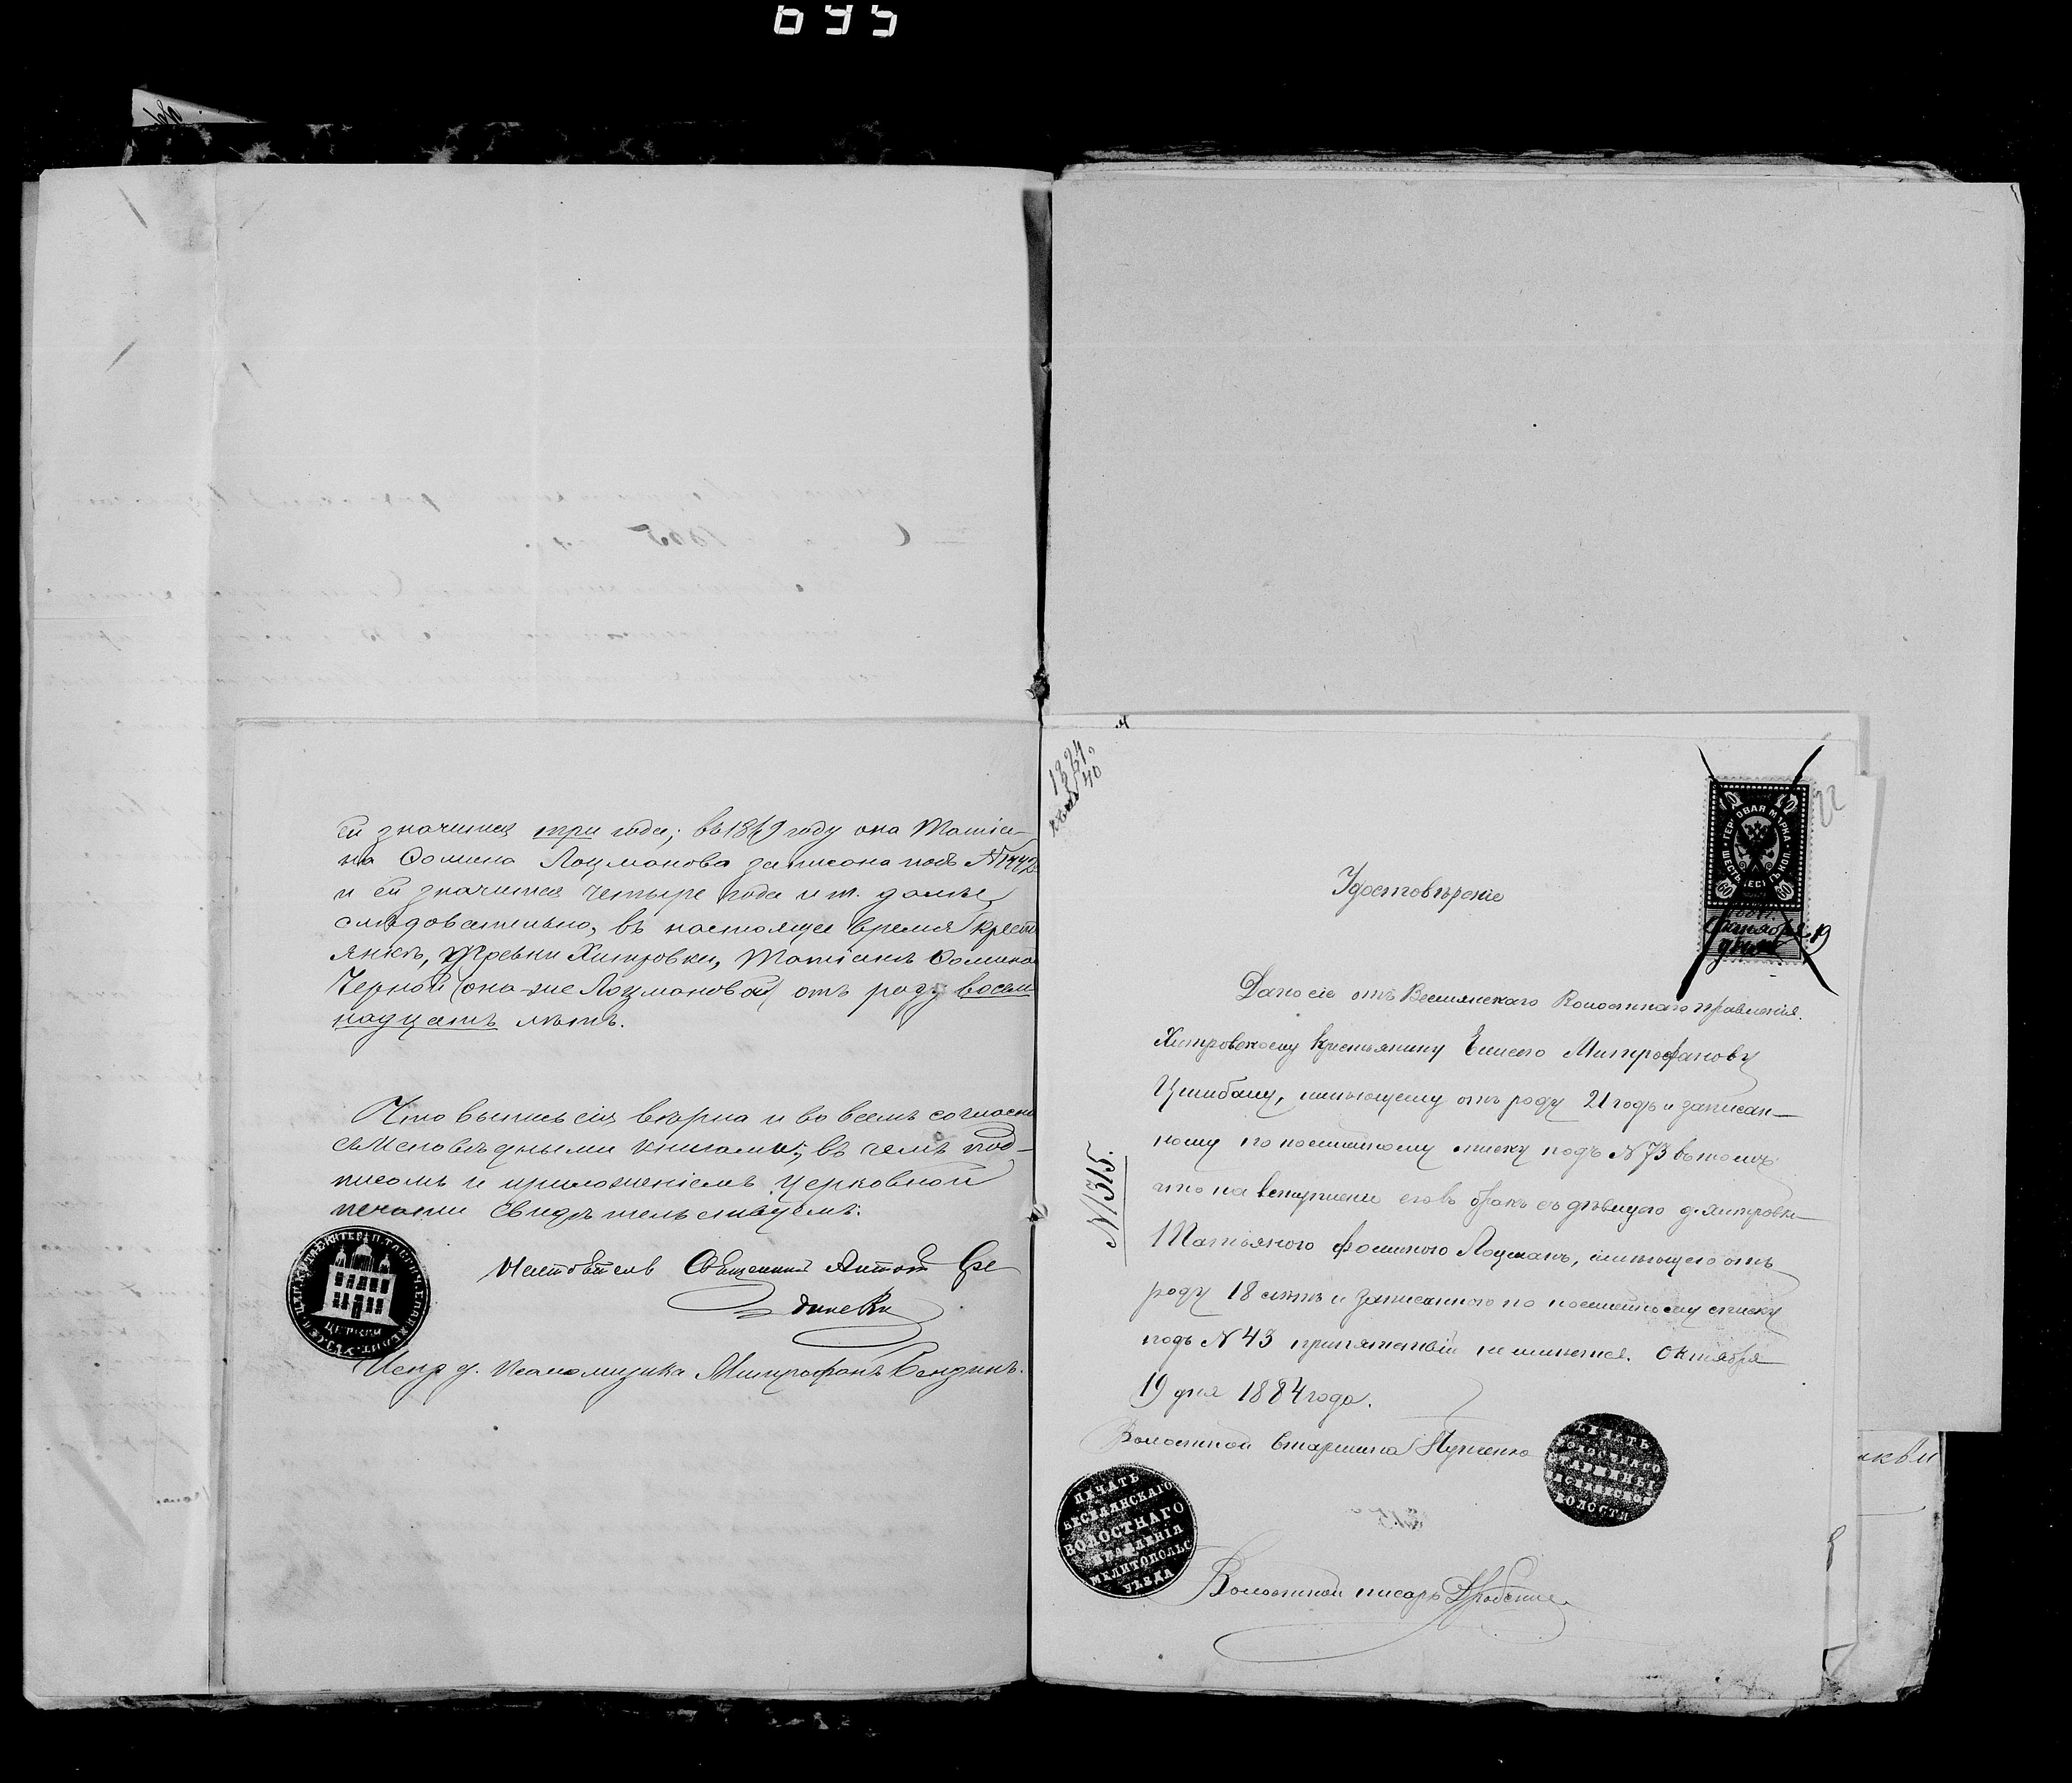 695
ей значится три года; въ 1869 году она Татіа-
на Фомина Лоцманова записана подъ №
и ей значится четыре года и т. далѣе
слѣдовательно, въ настоящее время кресть
янкѣ, деревни Хитровки, Татіанѣ Фомина
Черной (она-же Лоцмановой) отъ роду восем
надцать лѣтъ.
Что выпись сія вѣрна и во всемъ согласна
съ Исповѣдными книгами; въ чемъ под-
писомъ и приложеніемъ церковной
печати свидѣтельствуемъ.
Настоятель Священникъ Антоній
Испр. д. псаломщика Митрофанъ
ЦЕРКВИ
22
Удостовѣреніе
ГЕРБОВАЯ МАРКА
60 60
Октября 19
дня
Дано сіе отъ Веселянскаго Волостнаго правленія.
Хитровскому крестьянину Елисею Митрофанову
Цымбалу, имѣющему отъ роду 21 годъ и записан-
ному по посемейному списку подъ № 73 въ томъ
что на вступленіе его въ бракъ съ дѣвицею д. Хитровки
Татьяною Фоминою Лоцманъ, имѣющею отъ
роду 18 лѣтъ и записанною по посемейному списку
подъ № 43 припятствій не имѣется. Октября
19 дня 1884 года.
№ 1315.
Волостной Старшина
ПЕЧАТЬ
ВОЛОСТНАГО
СТАРШИНЫ
ВОЛОСТИ
ПЕЧАТЬ
ВЕСЕЛЯНСКАГО
ВОЛОСТНАГО
ПРАВЛЕНІЯ
МЕЛИТОПОЛЬС
УѢЗДА
Волостной писарь